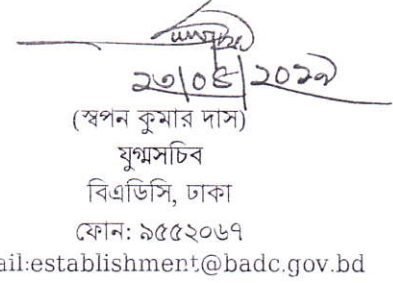 ২৩|০৫|২০১৯
(স্বপন কুমার দাস)
যুগ্মসচিব
বিএডিসি, ঢাকা
ফোন: ৯৫৫২০৬৭
ail:establishment@badc.gov.bd